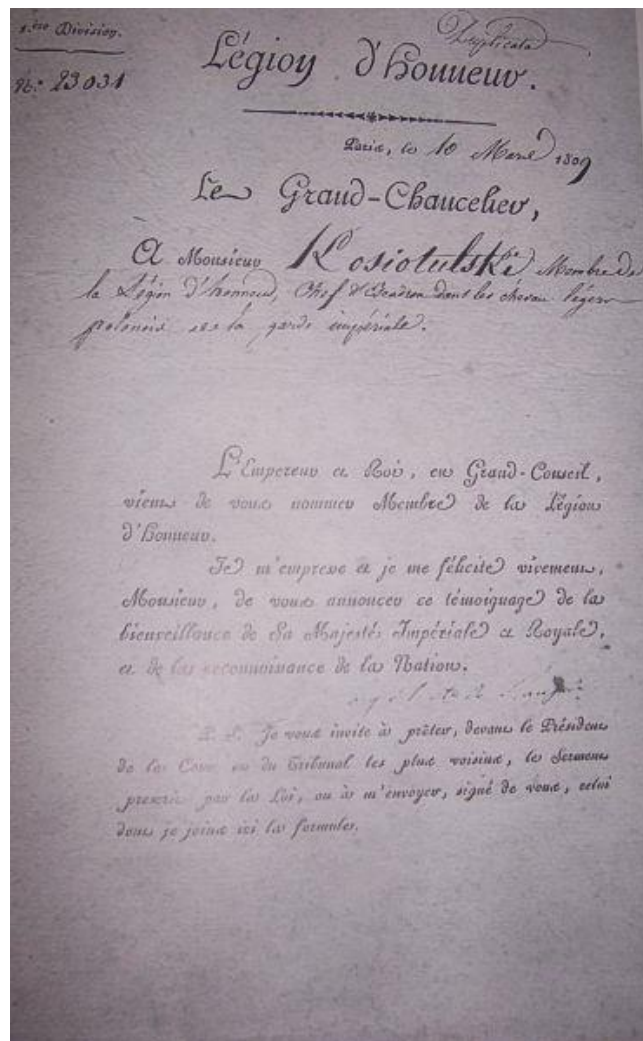 1.ère Division.
Duplicata
N.º 23031
Légion d'honneur.
Paris, le 10 Mars 1809
Le Grand-Chancelier,
A Monsieur Kosiotulski Membre de
la Légion d'honneur, Chef d'Escadron dans les chevau légers
polonais de la garde impériale.
L'Empereur et Roi, en Grand-Conseil,
vient de vous nommer Membre de la Légion
d'honneur.
Je m'empresse et je me félicite vivement,
Monsieur, de vous annoncer ce témoignage de la
bienveillance de Sa Majesté Impériale et Royale,
et de la reconnaissance de la Nation.
P. S. Je vous invite à prêter, devant le Président
de la Cour ou du Tribunal les plus voisins, le Serment
prescrit par la Loi, ou à m'envoyer, signé de vous, celui
dont je joins ici la formule.